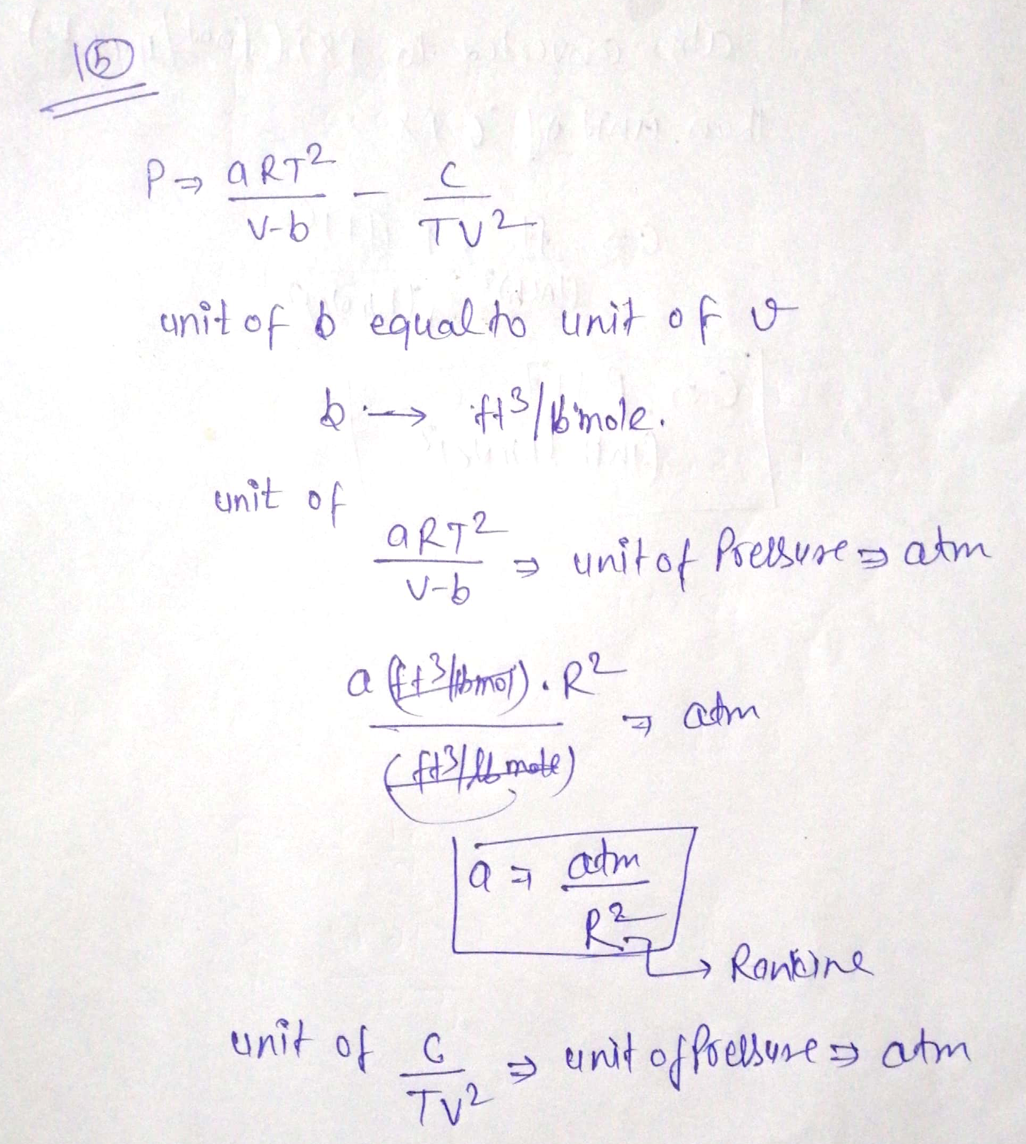 15
P ⇒ aRT² / V-b − C / TV²
unit of b equal to unit of v
b → ft³/lbmole.
unit of aRT² / V-b ⇒ unit of Pressure ⇒ atm
a (ft³/lbmol) . R² / (ft³/lb mole) ⇒ atm
a ⇒ atm / R²
→ Rankine
unit of C / TV² ⇒ unit of Pressure ⇒ atm